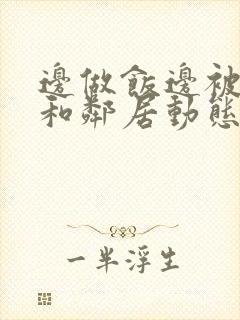 邊做飯邊被
和鄰居動態
一半浮生